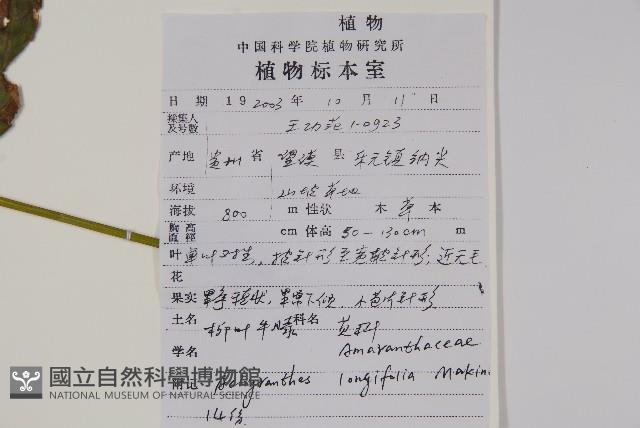 植物
中国科学院植物研究所
植物标本室
日 期 19 2003 年 10 月 11 日
採集人及号数 王功范 1-0923
产地 贵州 省 望谟 县 乐元镇 纳尖
环境 山坡草地
海拔 800 m 性状 木 草 本
胸高直徑 cm 体高 50-130cm m
叶 单叶对生, 披针形至宽披针形; 近无毛
花
果实 穗状, 下倾, 小苞片针形
土名 柳叶牛膝 科名 苋科
学名 Amaranthaceae
附记 Achyranthes longifolia Makin.
14份
國立自然科學博物館
NATIONAL MUSEUM OF NATURAL SCIENCE